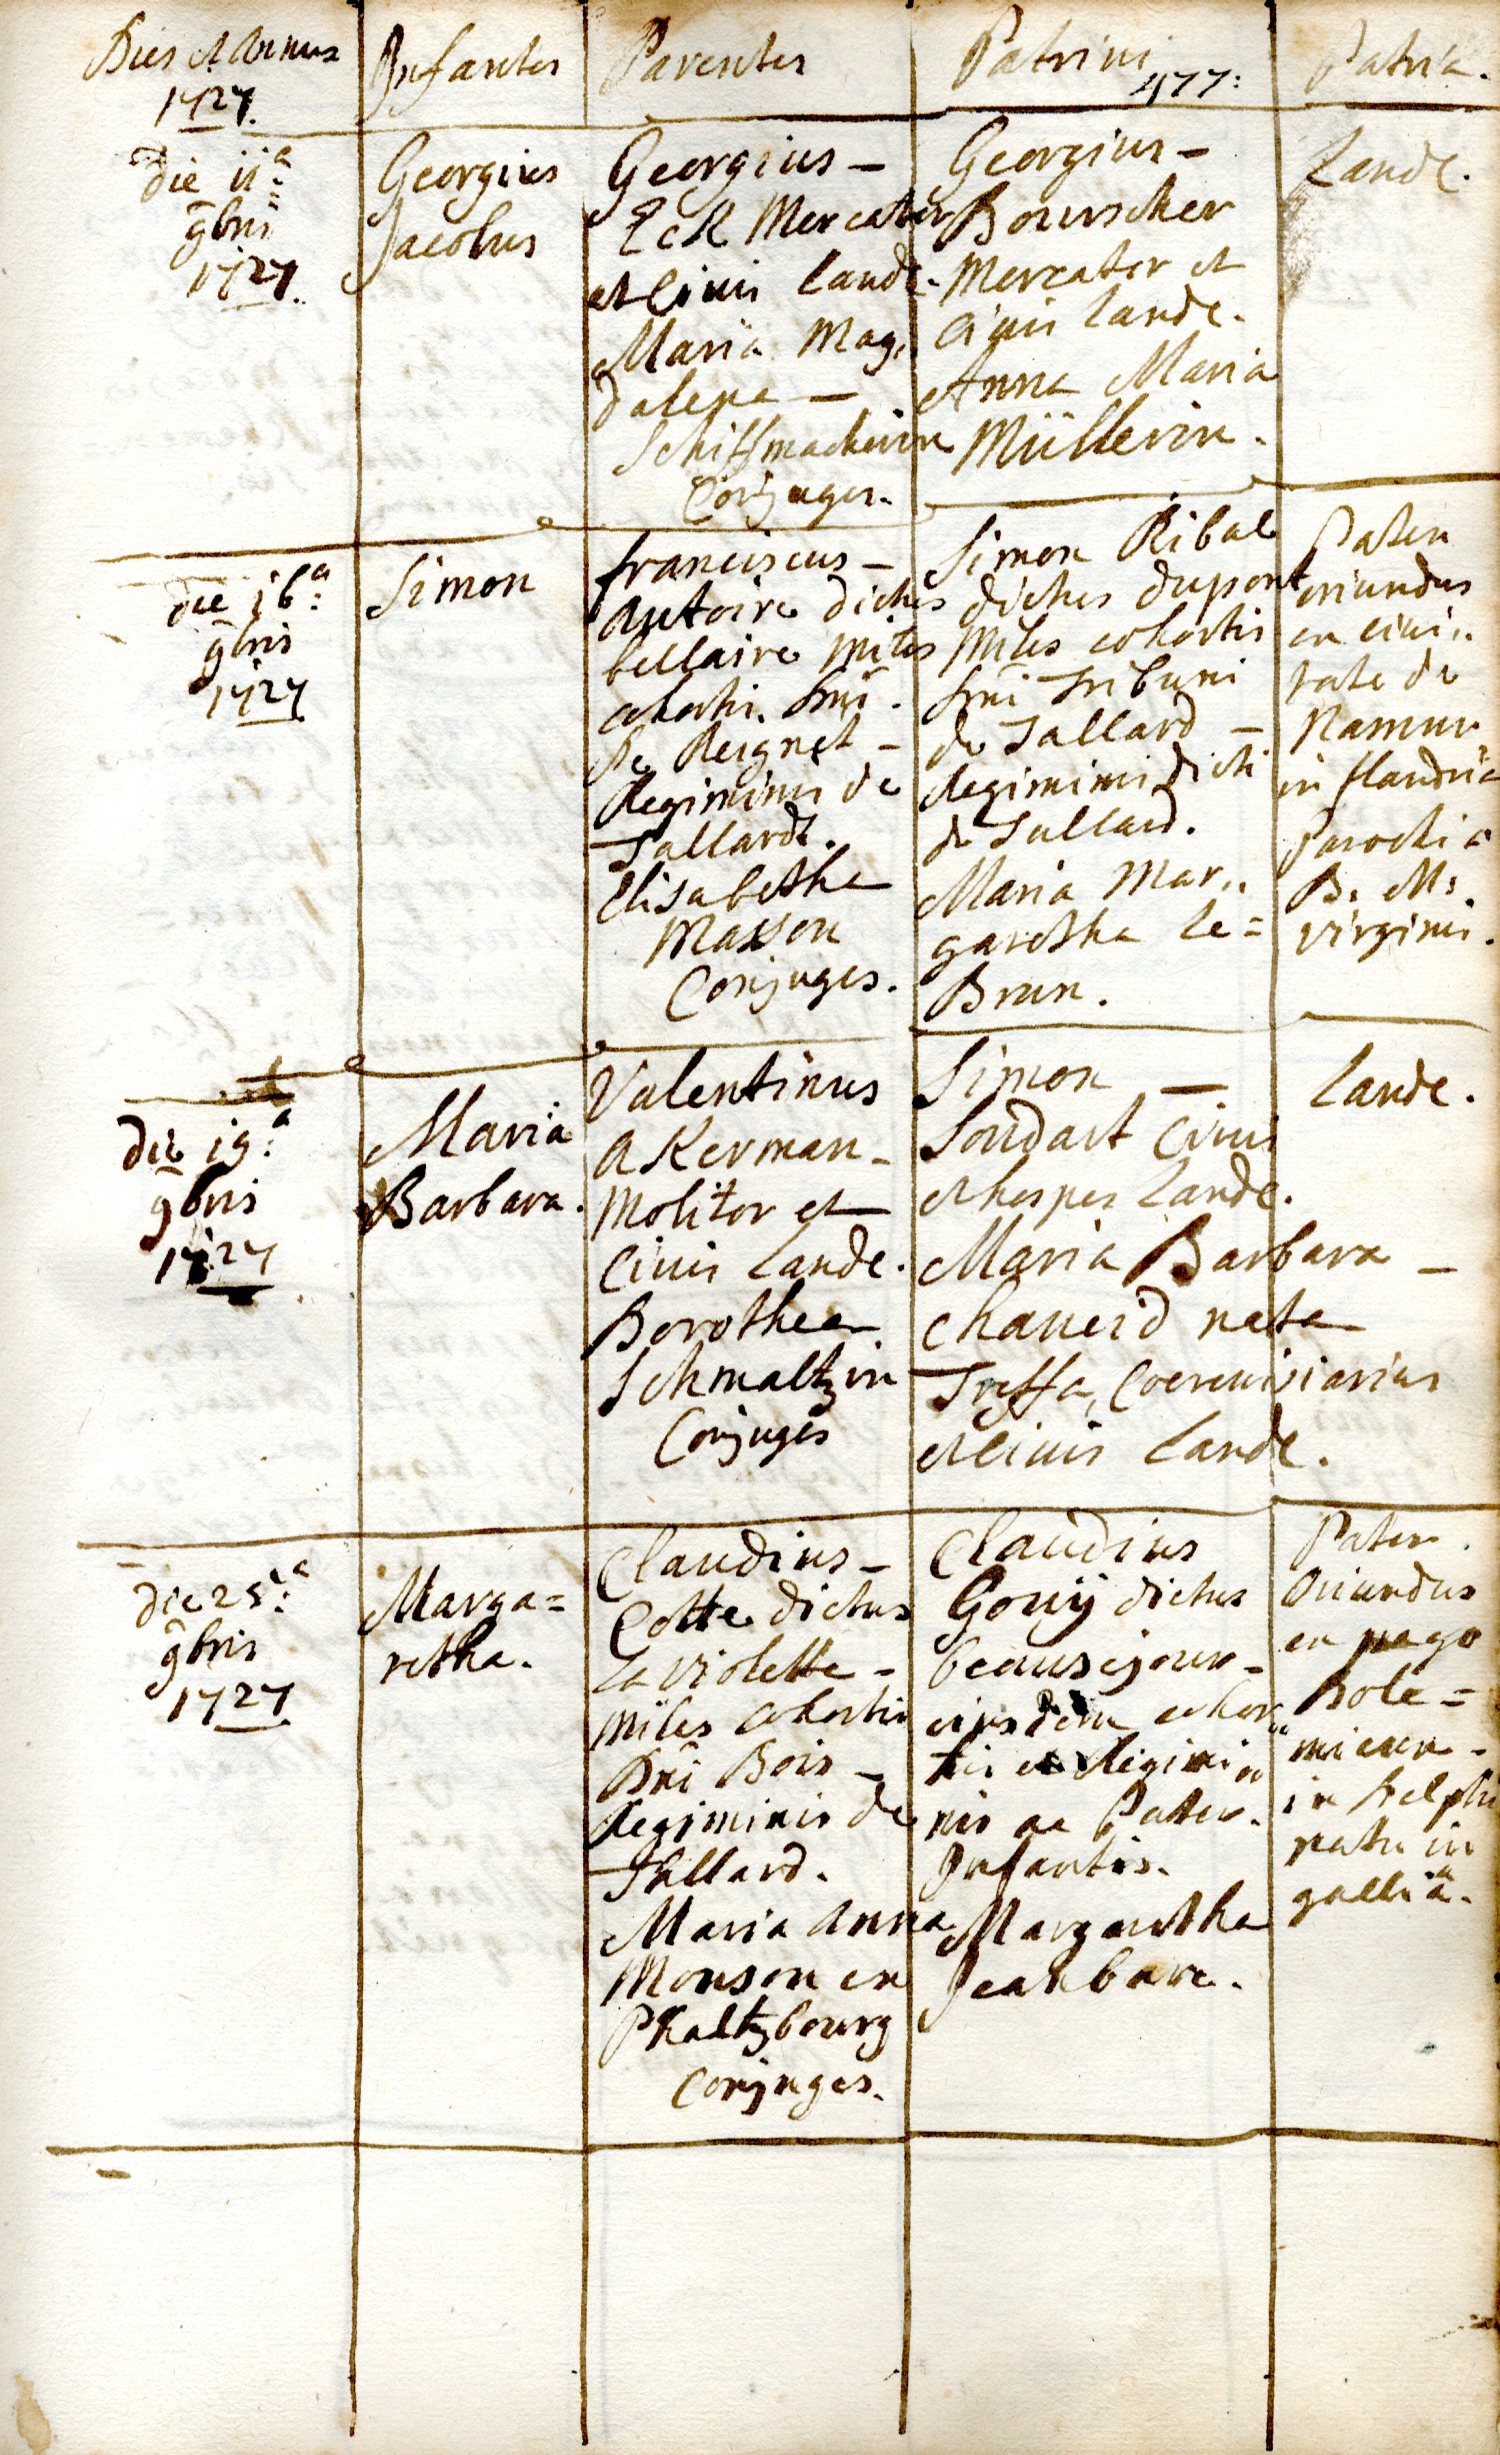 Dies et Annus
1727.
Infantes
Parentes
Patrini
477:
Patria.
die ii.a
9bris
1727.
Georgius
Jacobus
Georgius –
Eck Mercator
et Civis Landa.
Maria Mag,,
dalena –
Schiffmacherin
Conjuges.
Georgius –
Bourscher
Mercator et
Civis Landa.
Anna Maria
Müllerin.
Landa.
die i6:a
9bris
1727
Simon
franciscus –
Antoire dictus
bellaire miles
cohortis Dni.
de Reignet –
Regiminis de
Tallardt.
Elisabetha
Masson
Conjuges.
Simon Ribal
dictus dupont
Miles cohortis
Dni Tribuni
de Tallard –
Regiminis dicti
de Tallard.
Maria Mar,,
garetha le=
Brun.
Pater
oriundus
ex civi,,
tate de
Namur
in flandria
Parochia
B. M.
virginis.
die i9:a
9bris
1727
Maria
Barbara.
Valentinus
Akerman –
Molitor et
Civis Landa.
Dorothea
Schmaltzin
Conjuges
Simon –
Soudart Civis
et hospes Landa.
Maria Barbara –
chaueid nata
Treffa, Cerevisiarius
et Civis Landa.
Landa.
die 25:a
9bris
1727
Marga=
retha.
Claudius –
Cotte dictus
La violette –
miles cohortis
Dni Bois –
Regiminis de
Tallard.
Maria Anna
Monson ex
Phaltzbourg
Conjuges.
Claudius
Gouÿ dictus
beausejour –
eiusdem cohor,,
tis et Regimi,,
nis ac Pater
Infantis.
Margaretha
Jeanbare.
Pater
Oriundus
ex pago
Bole=
mieux –
in Delphi
natu in
galliâ.